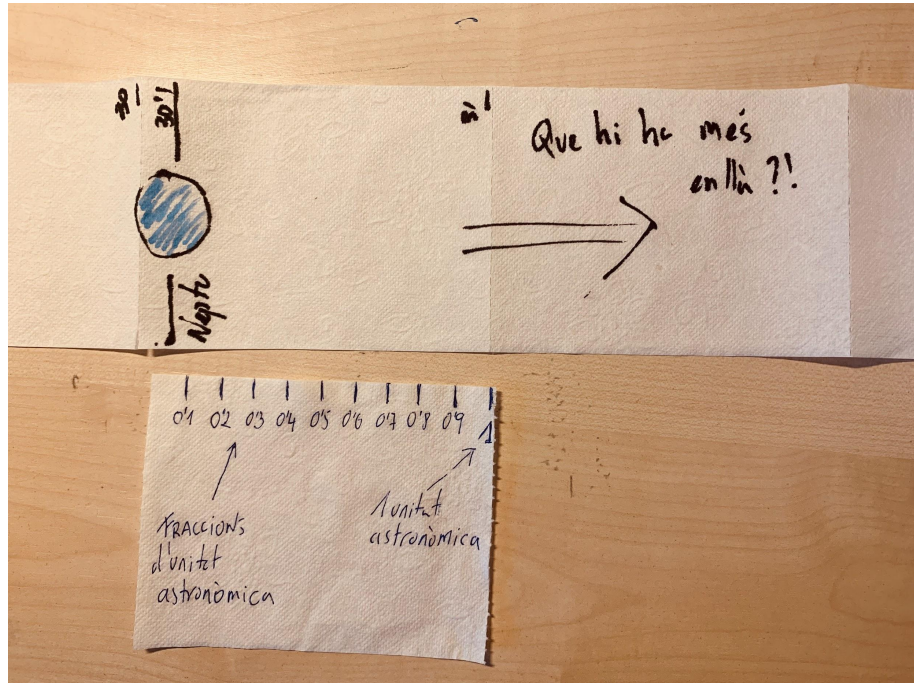 30
30'1
31
Que hi ha més
enllà ?!
Neptú
0'1 0'2 0'3 0'4 0'5 0'6 0'7 0'8 0'9 1
FRACCIONS
d'unitat
astronòmica
1 unitat
astronòmica